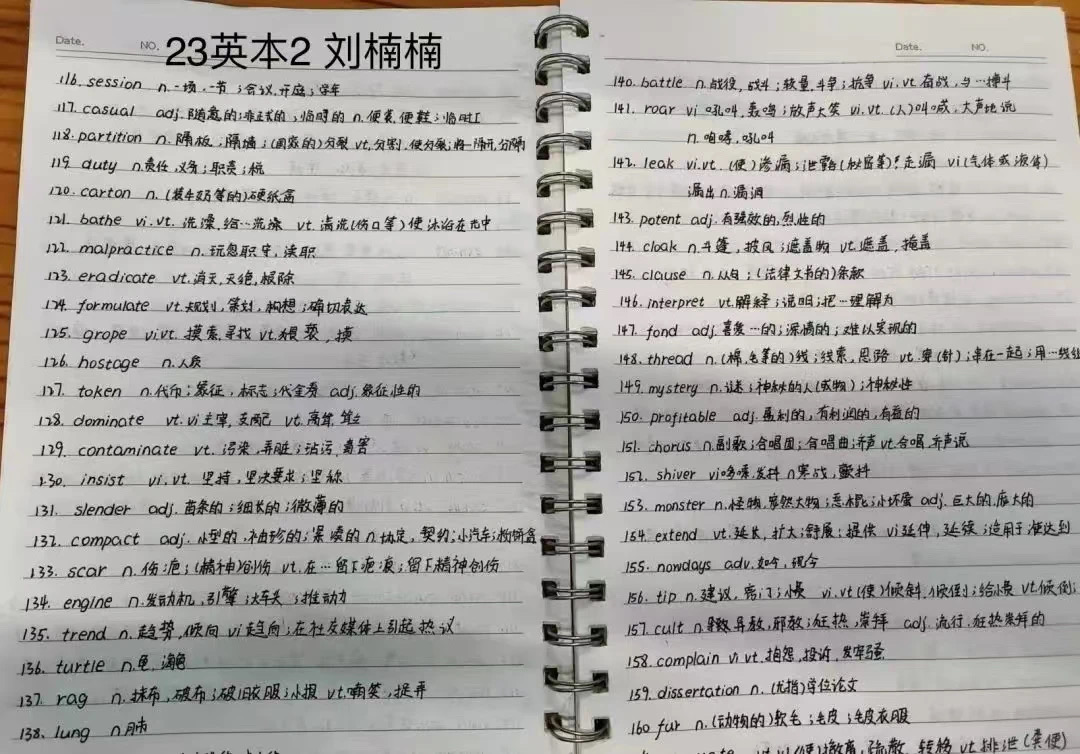 Date.
NO.
23英本2 刘楠楠
116. session n.一场,一节;会议,开庭;学年
117. casual adj.随意的;非正式的;临时的 n.便装,便鞋;临时工
118. partition n.隔板;隔墙;(国家的)分裂 vt.分割,使分裂;将…隔开,分隔
119. duty n.责任,义务;职责;税
120. carton n.(装牛奶等的)硬纸盒
121. bathe vi.vt.洗澡,给…洗澡 vt.清洗(伤口等)使沐浴在光中
122. malpractice n.玩忽职守,渎职
123. eradicate vt.消灭,灭绝,根除
124. formulate vt.规划,策划,构想;确切表达
125. grope vi.vt.摸索,寻找 vt.猥亵,摸
126. hostage n.人质
127. token n.代币;象征,标志;代金券 adj.象征性的
128. dominate vt.vi主宰,支配 vt.高耸,耸立
129. contaminate vt.污染,弄脏;玷污,毒害
130. insist vi.vt.坚持,坚决要求;坚称
131. slender adj.苗条的;细长的;微薄的
132. compact adj.小型的,袖珍的;紧凑的 n.协定,契约;小汽车;粉饼盒
133. scar n.伤疤;(精神)创伤 vt.在…留下疤痕;留下精神创伤
134. engine n.发动机,引擎;火车头;推动力
135. trend n.趋势,倾向 vi趋向;在社交媒体上引起热议
136. turtle n.龟,海龟
137. rag n.抹布,破布;破旧衣服;小报 vt.嘲笑,捉弄
138. lung n.肺
Date.
NO.
140. battle n.战役,战斗;较量,斗争;抗争 vi.vt.奋战,与…搏斗
141. roar vi吼叫,轰鸣;放声大笑 vi.vt.(人)叫喊,大声地说
n.咆哮,吼叫
142. leak vi.vt.(使)渗漏;泄露(秘密等);走漏 vi(气体或液体)
漏出 n.漏洞
143. potent adj.有强效的,烈性的
144. cloak n.斗篷,披风;遮盖物 vt.遮盖,掩盖
145. clause n.从句;(法律文书的)条款
146. interpret vt.解释;说明;把…理解为
147. fond adj.喜爱…的;深情的;难以实现的
148. thread n.(棉,毛等的)线;线索,思路 vt.穿(针);串在一起;用…线
149. mystery n.谜;神秘的人(或物);神秘性
150. profitable adj.盈利的,有利润的,有益的
151. chorus n.副歌;合唱团;合唱曲;齐声 vt.合唱,齐声说
152. shiver vi哆嗦,发抖 n寒战,颤抖
153. monster n.怪物,庞然大物;恶棍;小坏蛋 adj.巨大的,庞大的
154. extend vt.延长,扩大;舒展;提供 vi延伸,延续;适用于,涉达到
155. nowdays adv.如今,现今
156. tip n.建议,窍门;小费 vi.vt(使)倾斜,倾倒;给小费 vt.倾倒;
157. cult n.异教,邪教;狂热,崇拜 adj.流行,狂热崇拜的
158. complain vi vt.抱怨,投诉,发牢骚
159. dissertation n.(尤指)学位论文
160 fur n.(动物的)软毛;毛皮;毛皮衣服
vt.vi(使)撤离,疏散,转移 vt.排泄(粪便)